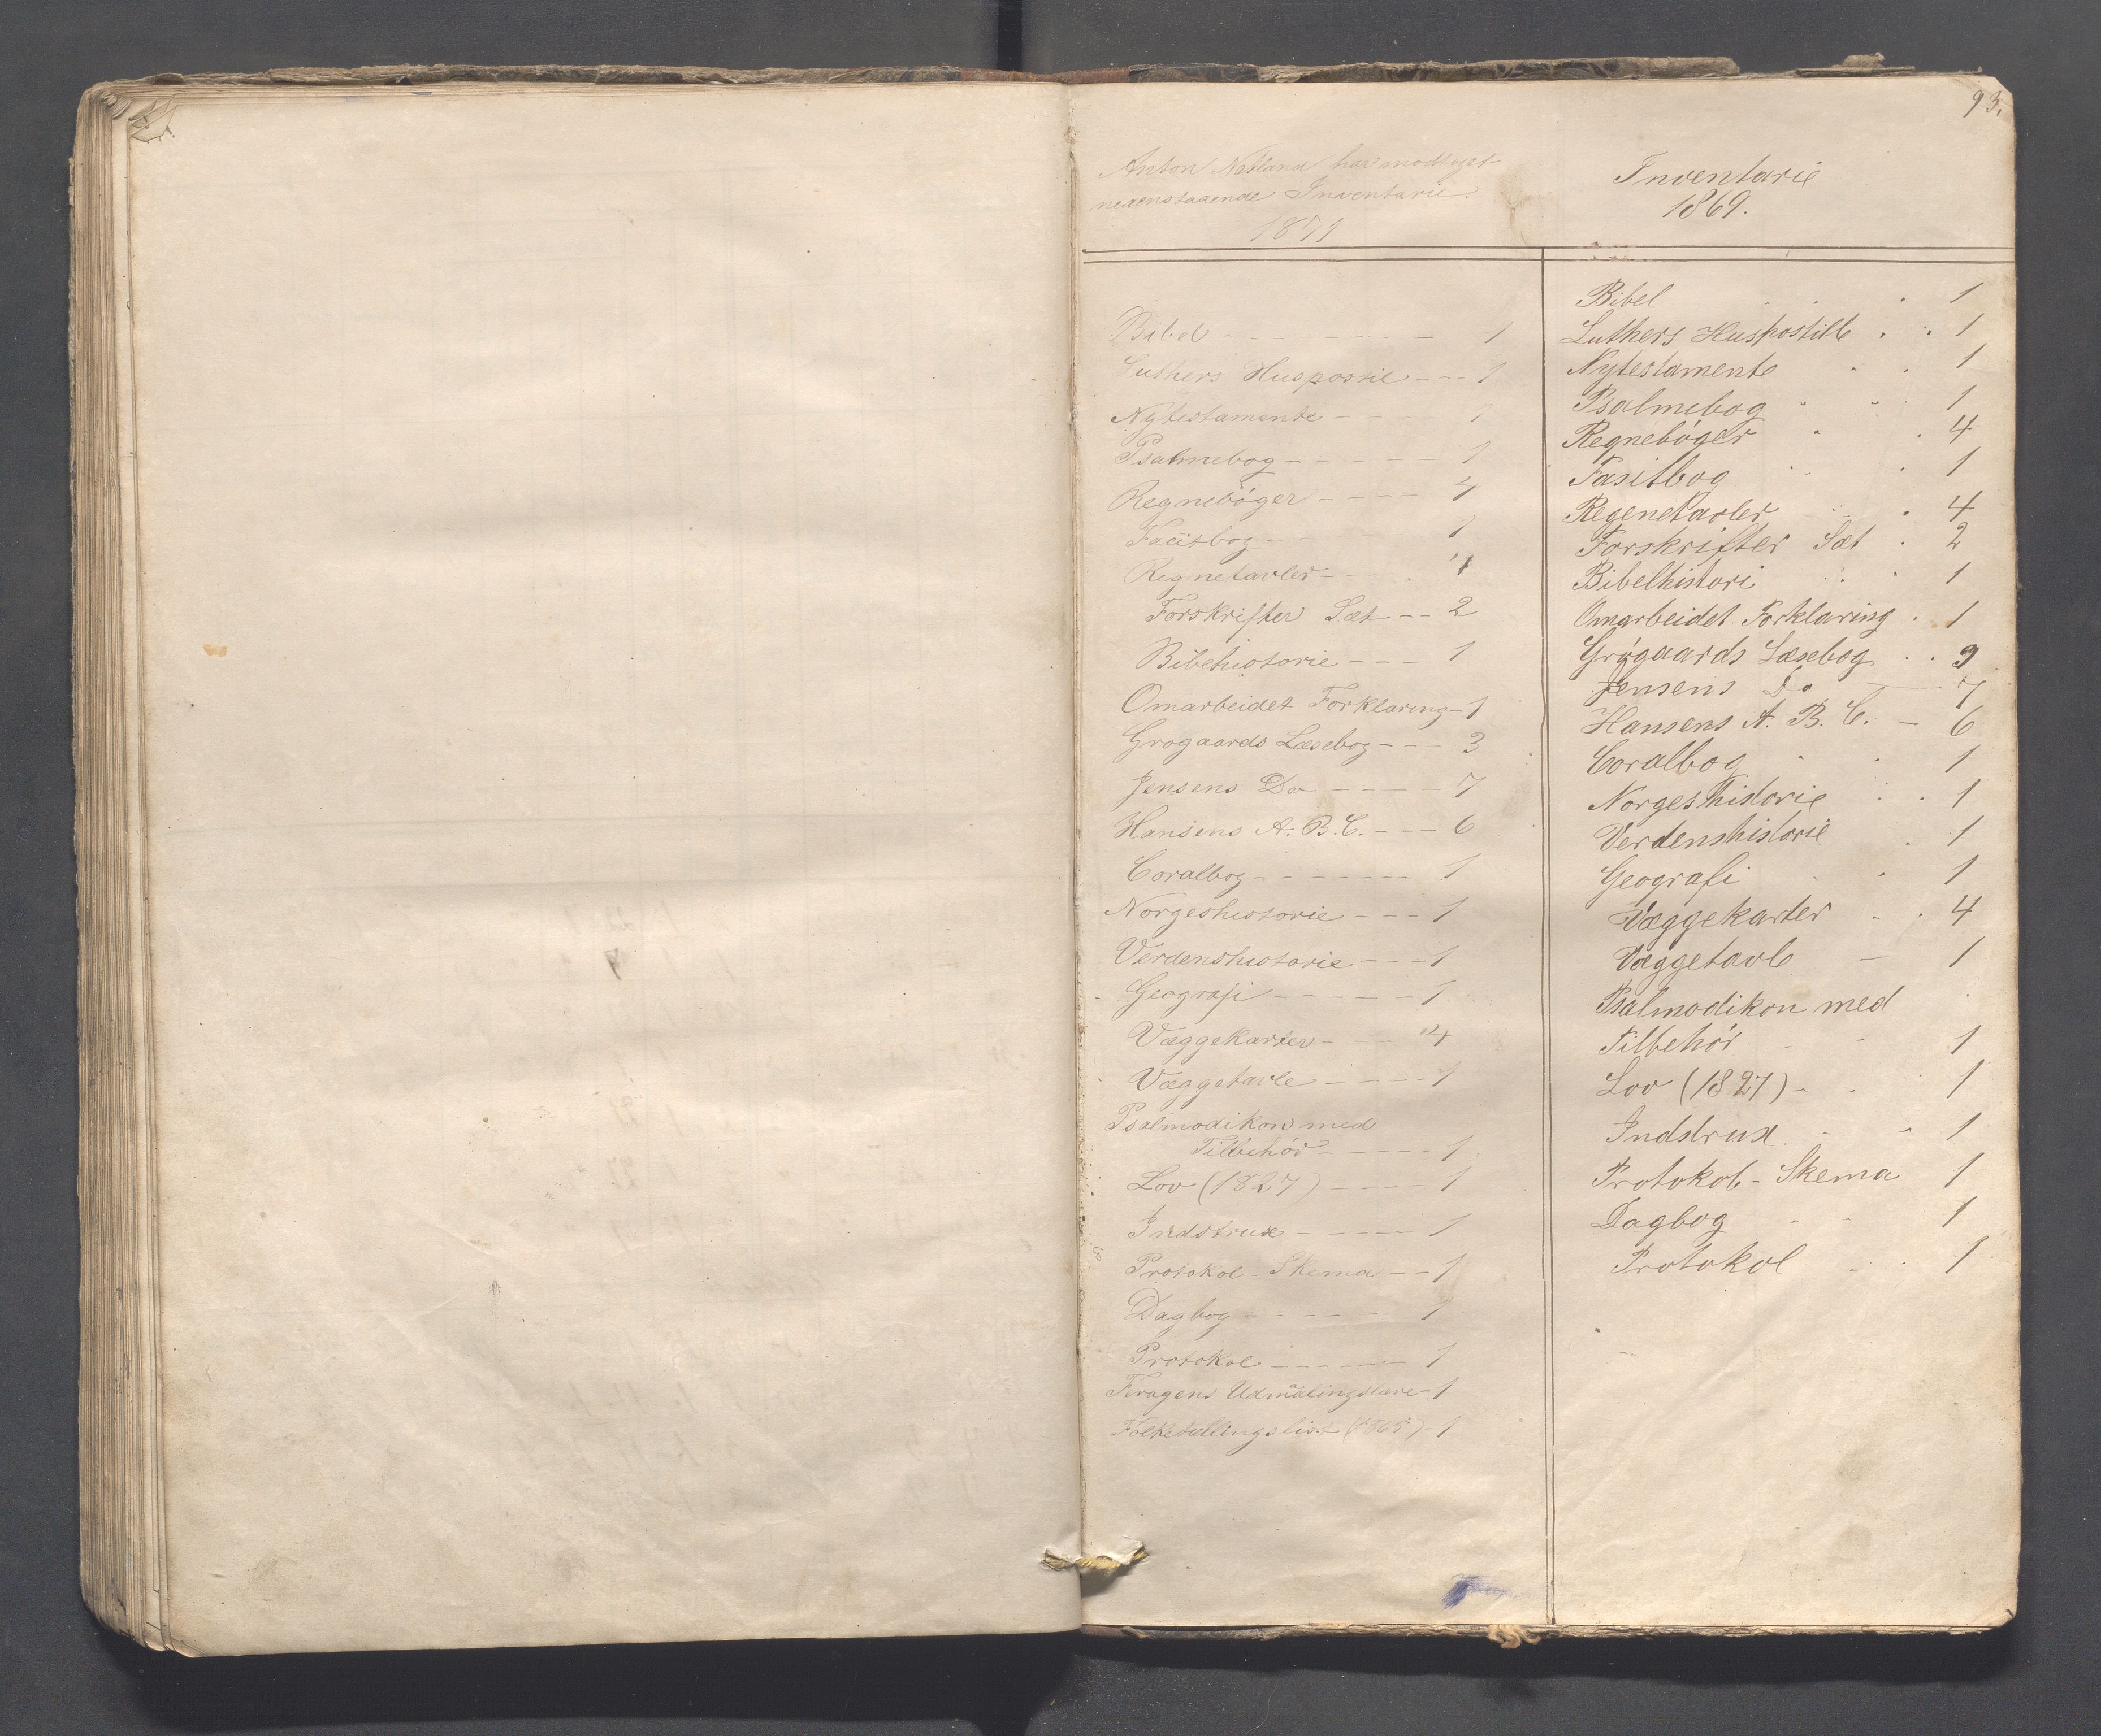 93.
Anton Natland har modtaget
nedenstaaende Inventarie.
1871
Bibel - - - - - - - - 1
Luthers Huspostil - - - 1
Nytestamente - - - - 1
Psalmebog - - - - - 1
Regnebøger - - - - 4
Facitbog - - - - 1
Regnetavler - - - 4
Forskrifter Sæt - - 2
Bibehistorie - - - 1
Omarbeidet Forklaring - 1
Grøgaards Læsebog - - - 3
Jensens Do - - - - 7
Hansens A. B. C. - - - 6
Coralbog - - - - - - - 1
Norgeshistorie - - - 1
Verdenshistorie - - - 1
Geografi - - - - - 1
Væggekarter - - - 4
Væggetavle - - - - 1
Psalmodikon med
Tilbehør - - - - - 1
Lov (1827) - - - - 1
Indstrux - - - - - 1
Protokol - Skema - - 1
Dagbog - - - - - - 1
Protokol - - - - - - 1
Feragens Udmålingslære - 1
Folketællingslist (1865) - 1
Inventarie
1869.
Bibel . . . 1
Luthers Huspostill . . 1
Nytestamente . . 1
Psalmebog . . 1
Regnebøger . . 4
Fasitbog . . 1
Regenetavler . 4
Forskrifter Sæt . 2
Bibelhistori . . 1
Omarbeidet Forklaring . 1
Grøgaards Læsebog . . 3
Jensens Do — 7
Hansens A. B. C. - 6
Coralbog . . 1
Norgeshistorie . . 1
Verdenshistorie . 1
Geografi . . 1
Væggekarter - . 4
Væggetavle - 1
Psalmodikon med
Tilbehør - - 1
Lov (1827) - - 1
Indstrux - - 1
Protokol - Skema 1
Dagbog - - 1
Protokol - - 1